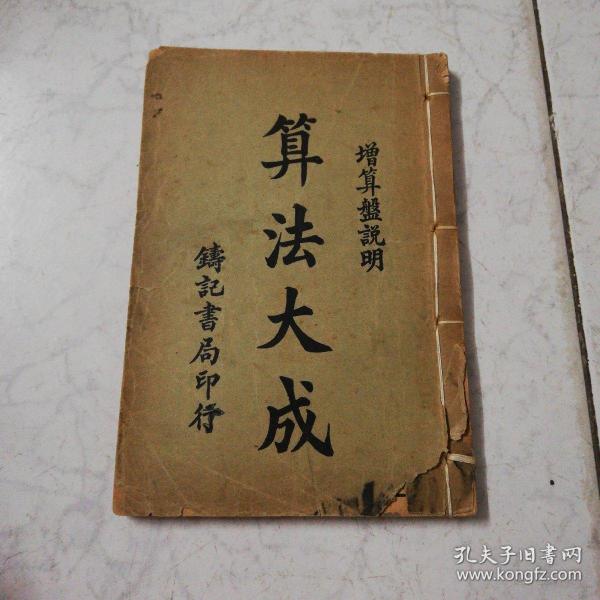 增算盤説明
算法大成
鑄記書局印行
孔夫子旧書网
www.kongfz.com